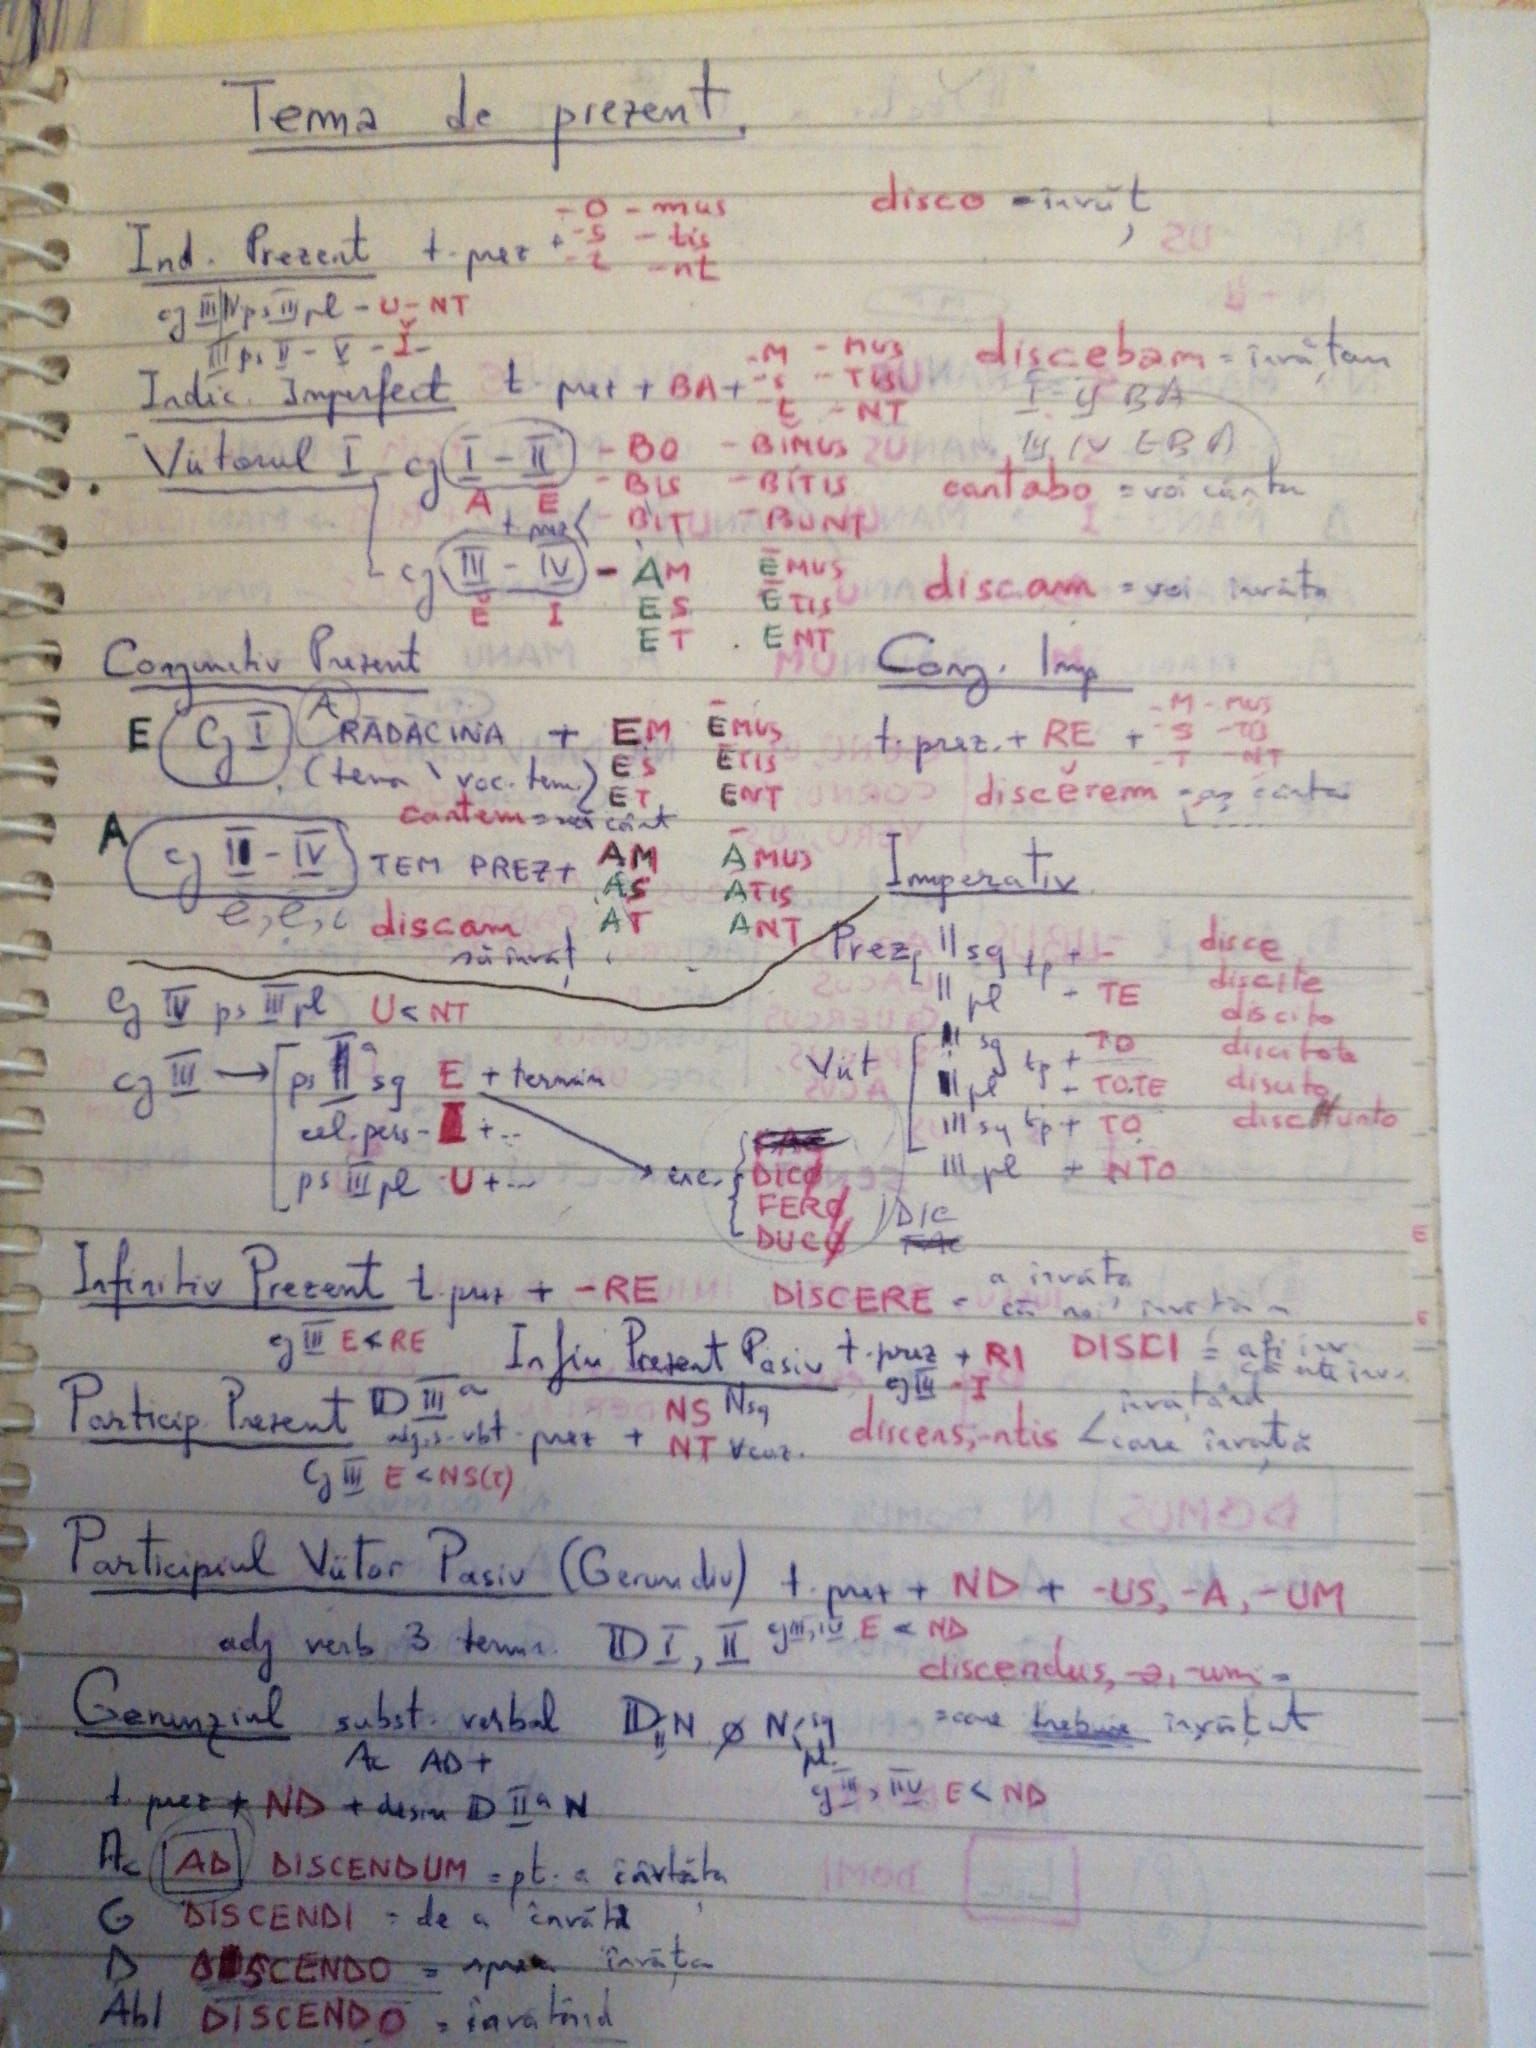 Tema de prezent.
disco = învăț
Ind. Prezent t. prez + -O -mus
-S -tis
-t -nt
cj III IV ps III pl - U - NT
III ps II - V - Ĭ -
Indic. Imperfect t. prez + BA + -M -MUS
-S -TIS
-t -NT
discebam = învățam
I - II BA
III IV EBA
Viitorul I cj I - II -BO -BIMUS
A E -BIS -BITIS
t prez -BIT -BUNT
cantabo = voi cânta
cj III - IV - AM ĒMUS
Ĕ I ES ĒTIS
ET ENT
discam = voi învăța
Conjunctiv Prezent
E Cj I A RĂDĂCINA + EM ĒMUS
(tema \ voc. tem.) ES ĒTIS
ET ENT
cantem = să cânt
A cj II - IV TEM PREZ + AM ĀMUS
e, ĕ, i AS ĀTIS
AT ANT
discam
să învăț
Conj. Imp
t. prez. + RE + -M -MUS
-S -TIS
-T -NT
discĕrem = aș cânta
Imperativ
Prez II sg tp + - disce
II pl - TE discite
Viit II sg tp + TO discito
II pl - TOTE discitote
III sg tp + TO discito
III pl + NTO discunto
Cj IV ps III pl U < NT
cj III → ps II a sg E + termin
cel. pers - I + ...
ps III pl - U + ...
exc. DICO
FERO
DUCO
DIC
Infinitiv Prezent t. prez + -RE DISCERE = a învăța
cj III E < RE
Infin Prezent Pasiv t. prez + RI DISCI = a fi înv.
cj III - I
Particip. Prezent D III a
t. prez + NS N sg
NT
discens, -ntis < învățând
care învață
Cj III E < NS(T)
Participiul Viitor Pasiv (Gerundiv) t. prez + ND + -US, -A, -UM
adj verb 3 term. D I, II cj III, IV E < ND
discendus, -a, -um =
= care trebuie învățat
Gerunziul subst. verbal D II N ø N sg
pl.
Ac AD +
cj III, IV E < ND
t. prez + ND + desin D II a N
Ac AD DISCENDUM = pt. a învăța
G DISCENDI = de a învăța
D DISCENDO = spre învăța
Abl DISCENDO = învățând